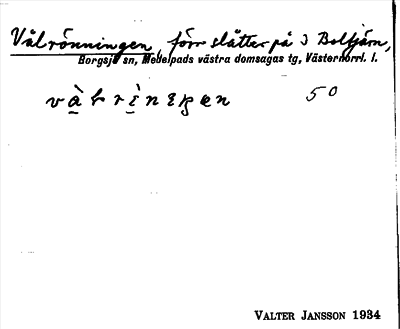 Vålrönningen, förr slåtter på 3 Boltjärn,
Borgsjö sn, Medelpads västra domsagas tg, Västernorrl. l.
50
VALTER JANSSON 1934